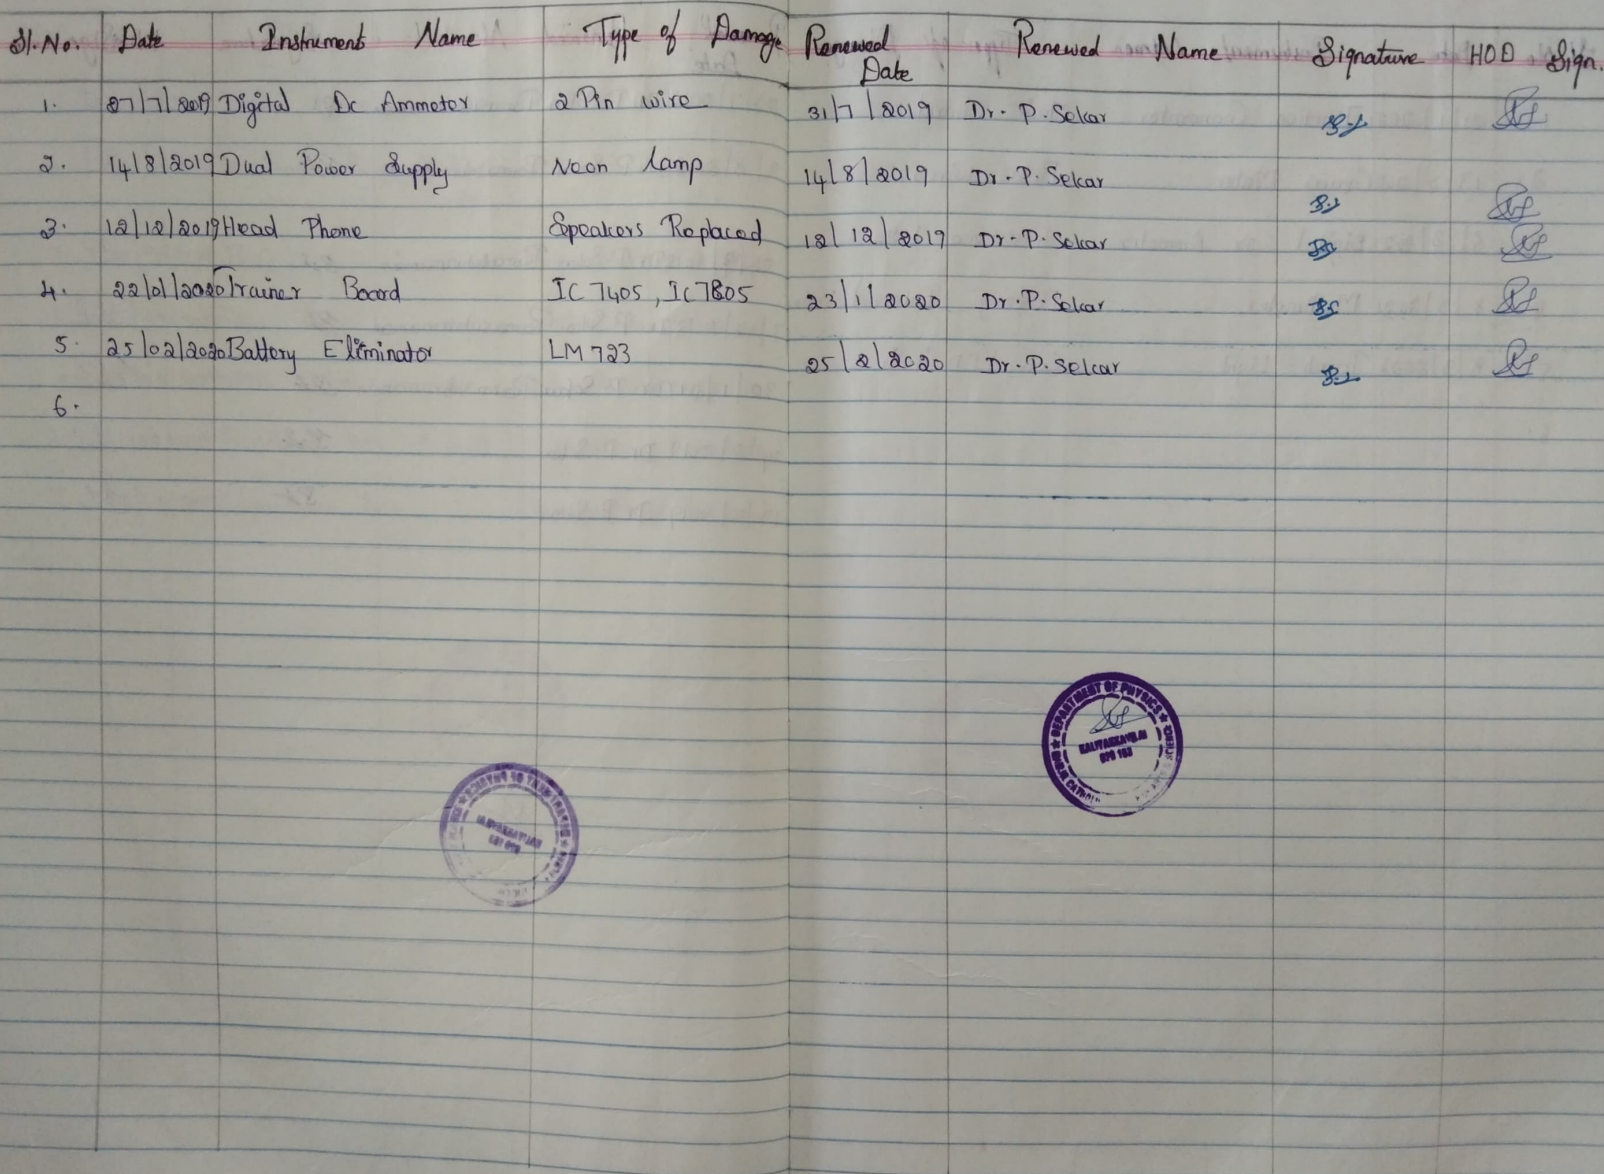 Sl. No. Date Instrument Name Type of Damage Renewed Date Renewed Name Signature HOD Sign.
1. 07/7/2019 Digital Dc Ammeter 2 Pin wire 31/7/2019 Dr. P. Sekar
2. 14/8/2019 Dual Power Supply Neon lamp 14/8/2019 Dr. P. Sekar
3. 12/12/2019 Head Phone Speakers Replaced 12/12/2019 Dr. P. Sekar
4. 22/01/2020 Trainer Board IC 7405, IC 7805 23/1/2020 Dr. P. Sekar
5. 25/02/2020 Battery Eliminator LM 723 25/2/2020 Dr. P. Sekar
6.
DEPARTMENT OF PHYSICS
KALIYAKKAVILAI